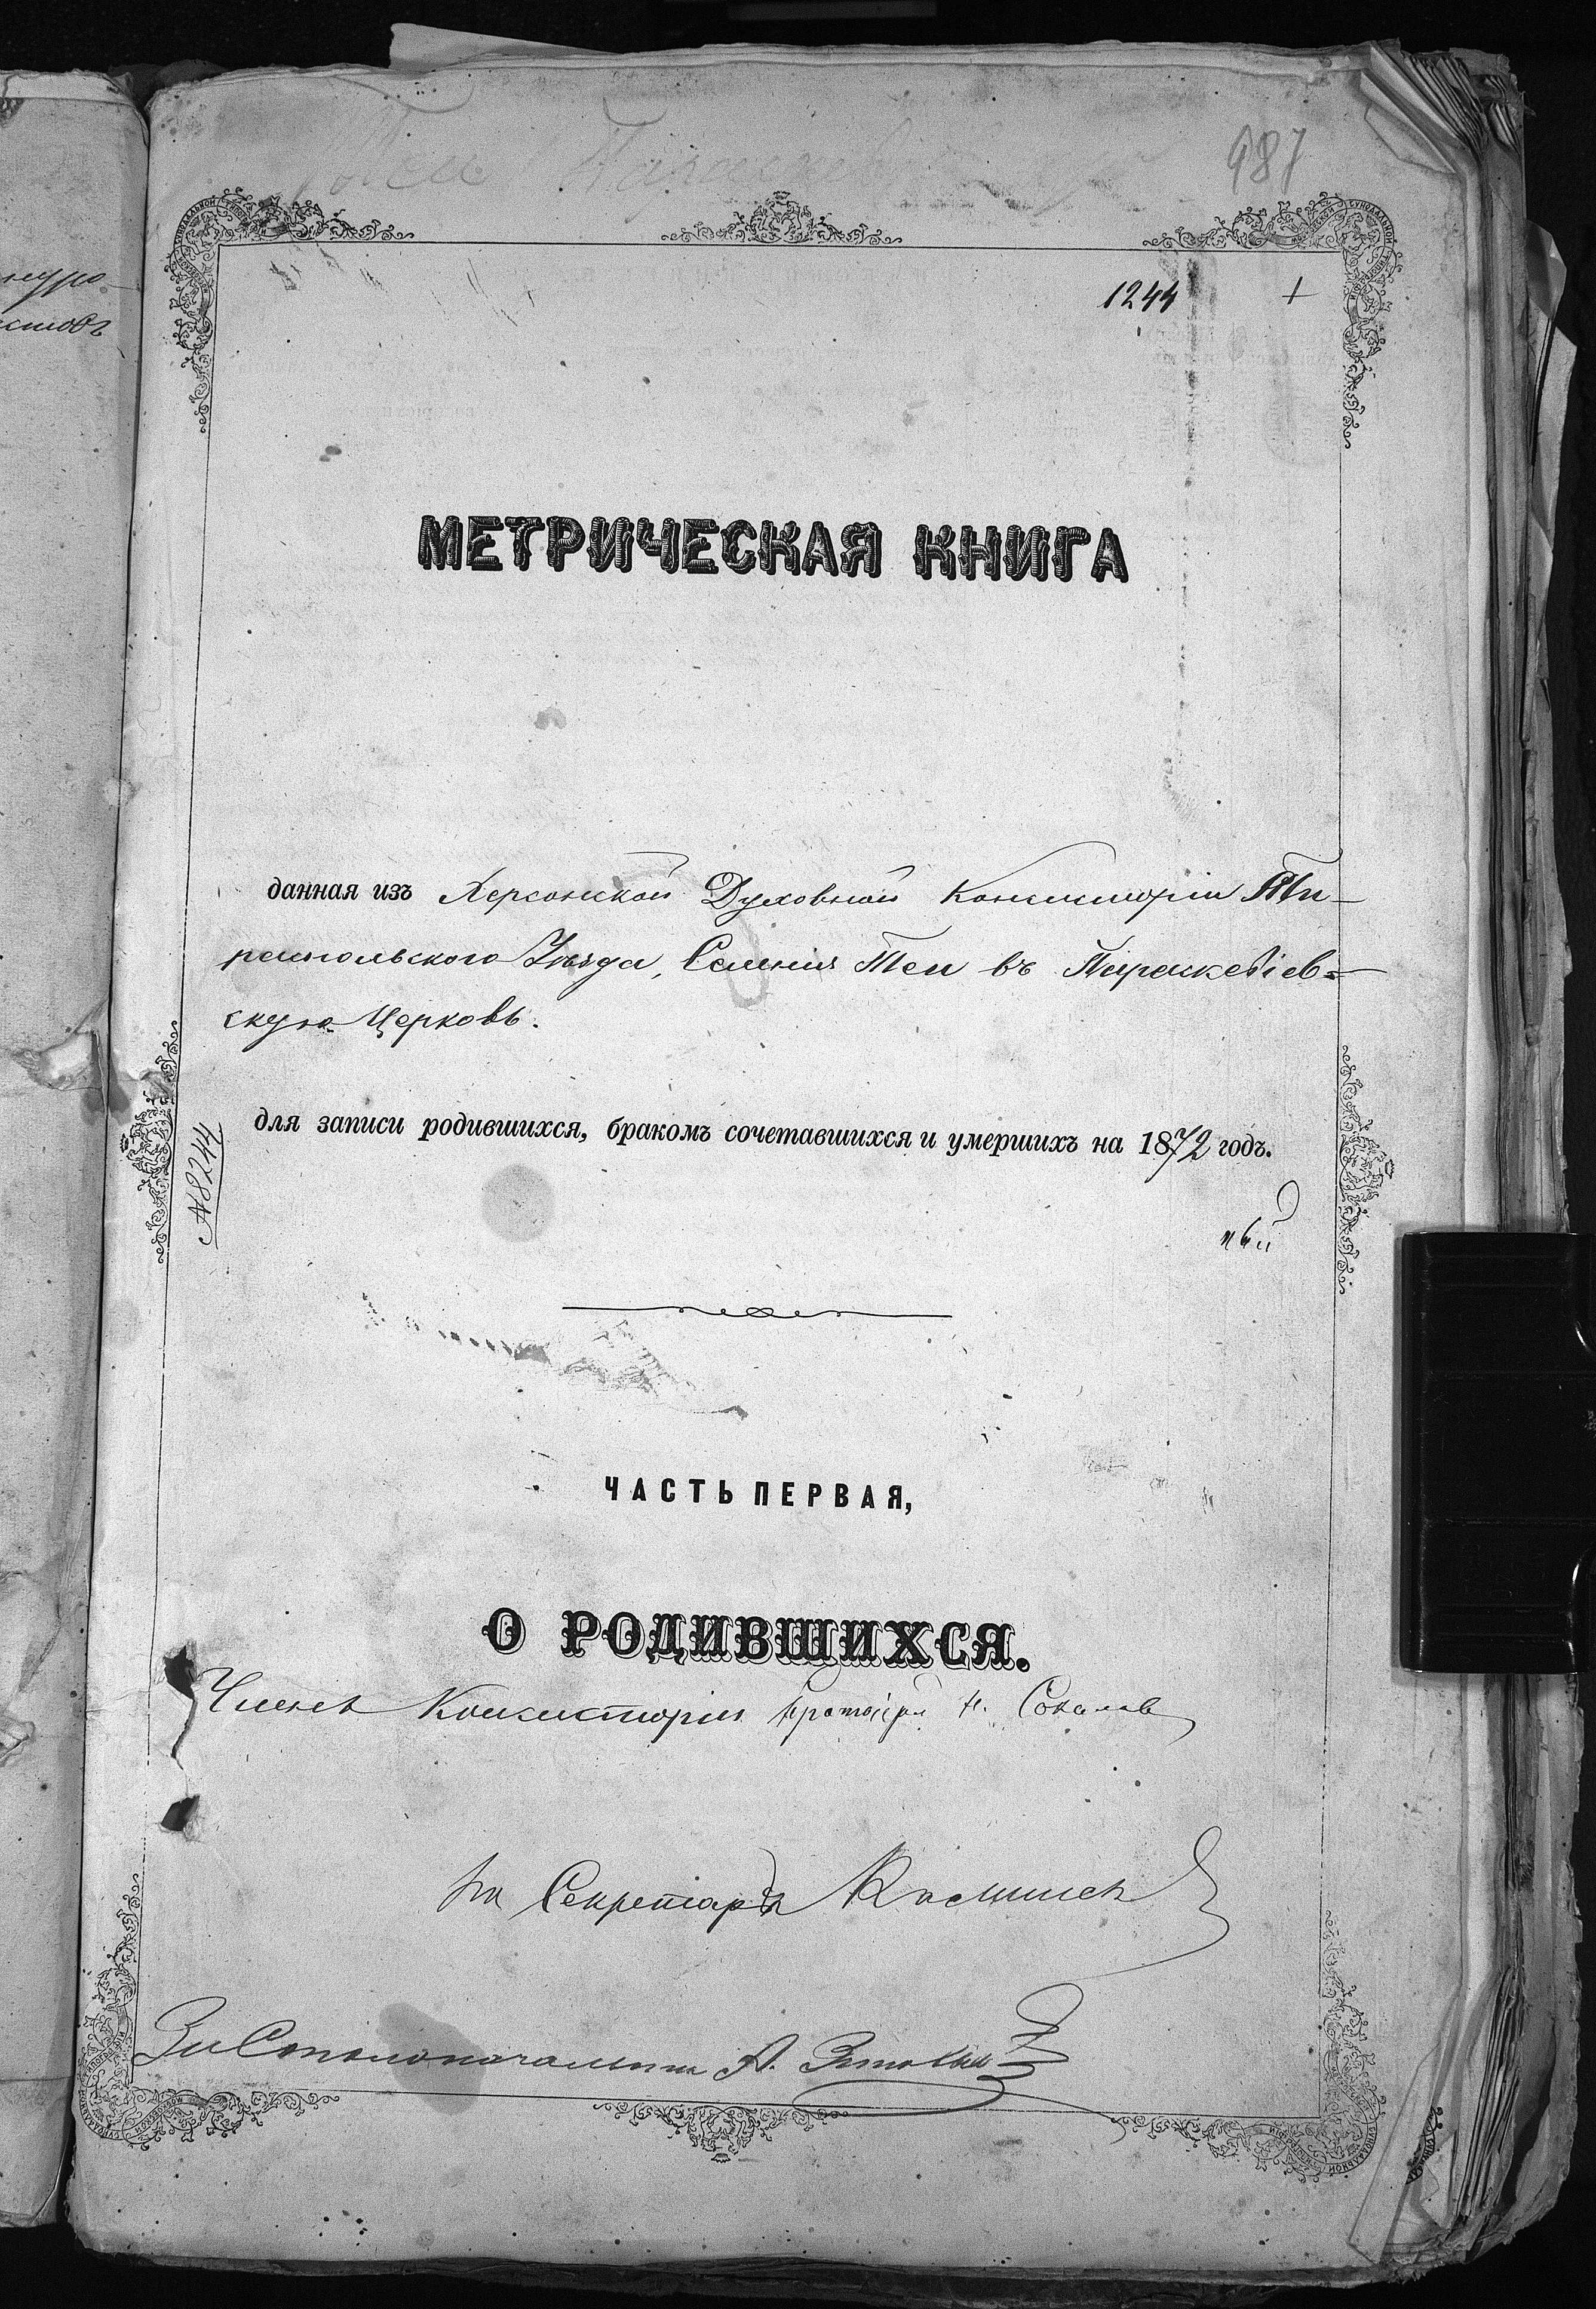 987
1244 +
МЕТРИЧЕСКАЯ КНИГА
данная изъ Херсонской Духовной Консисторіи Ти-
распольского Уѣзда, Селенія Теи въ Параскевіев-
скую Церковь.
для записи родившихся, бракомъ сочетавшихся и умершихъ на 1872 годъ.
№8244
ЧАСТЬ ПЕРВАЯ,
О РОДИВШИХСЯ.
Членъ Консисторіи Протоіерей Н. Соколов
Секретарь
За Столоначальника А.